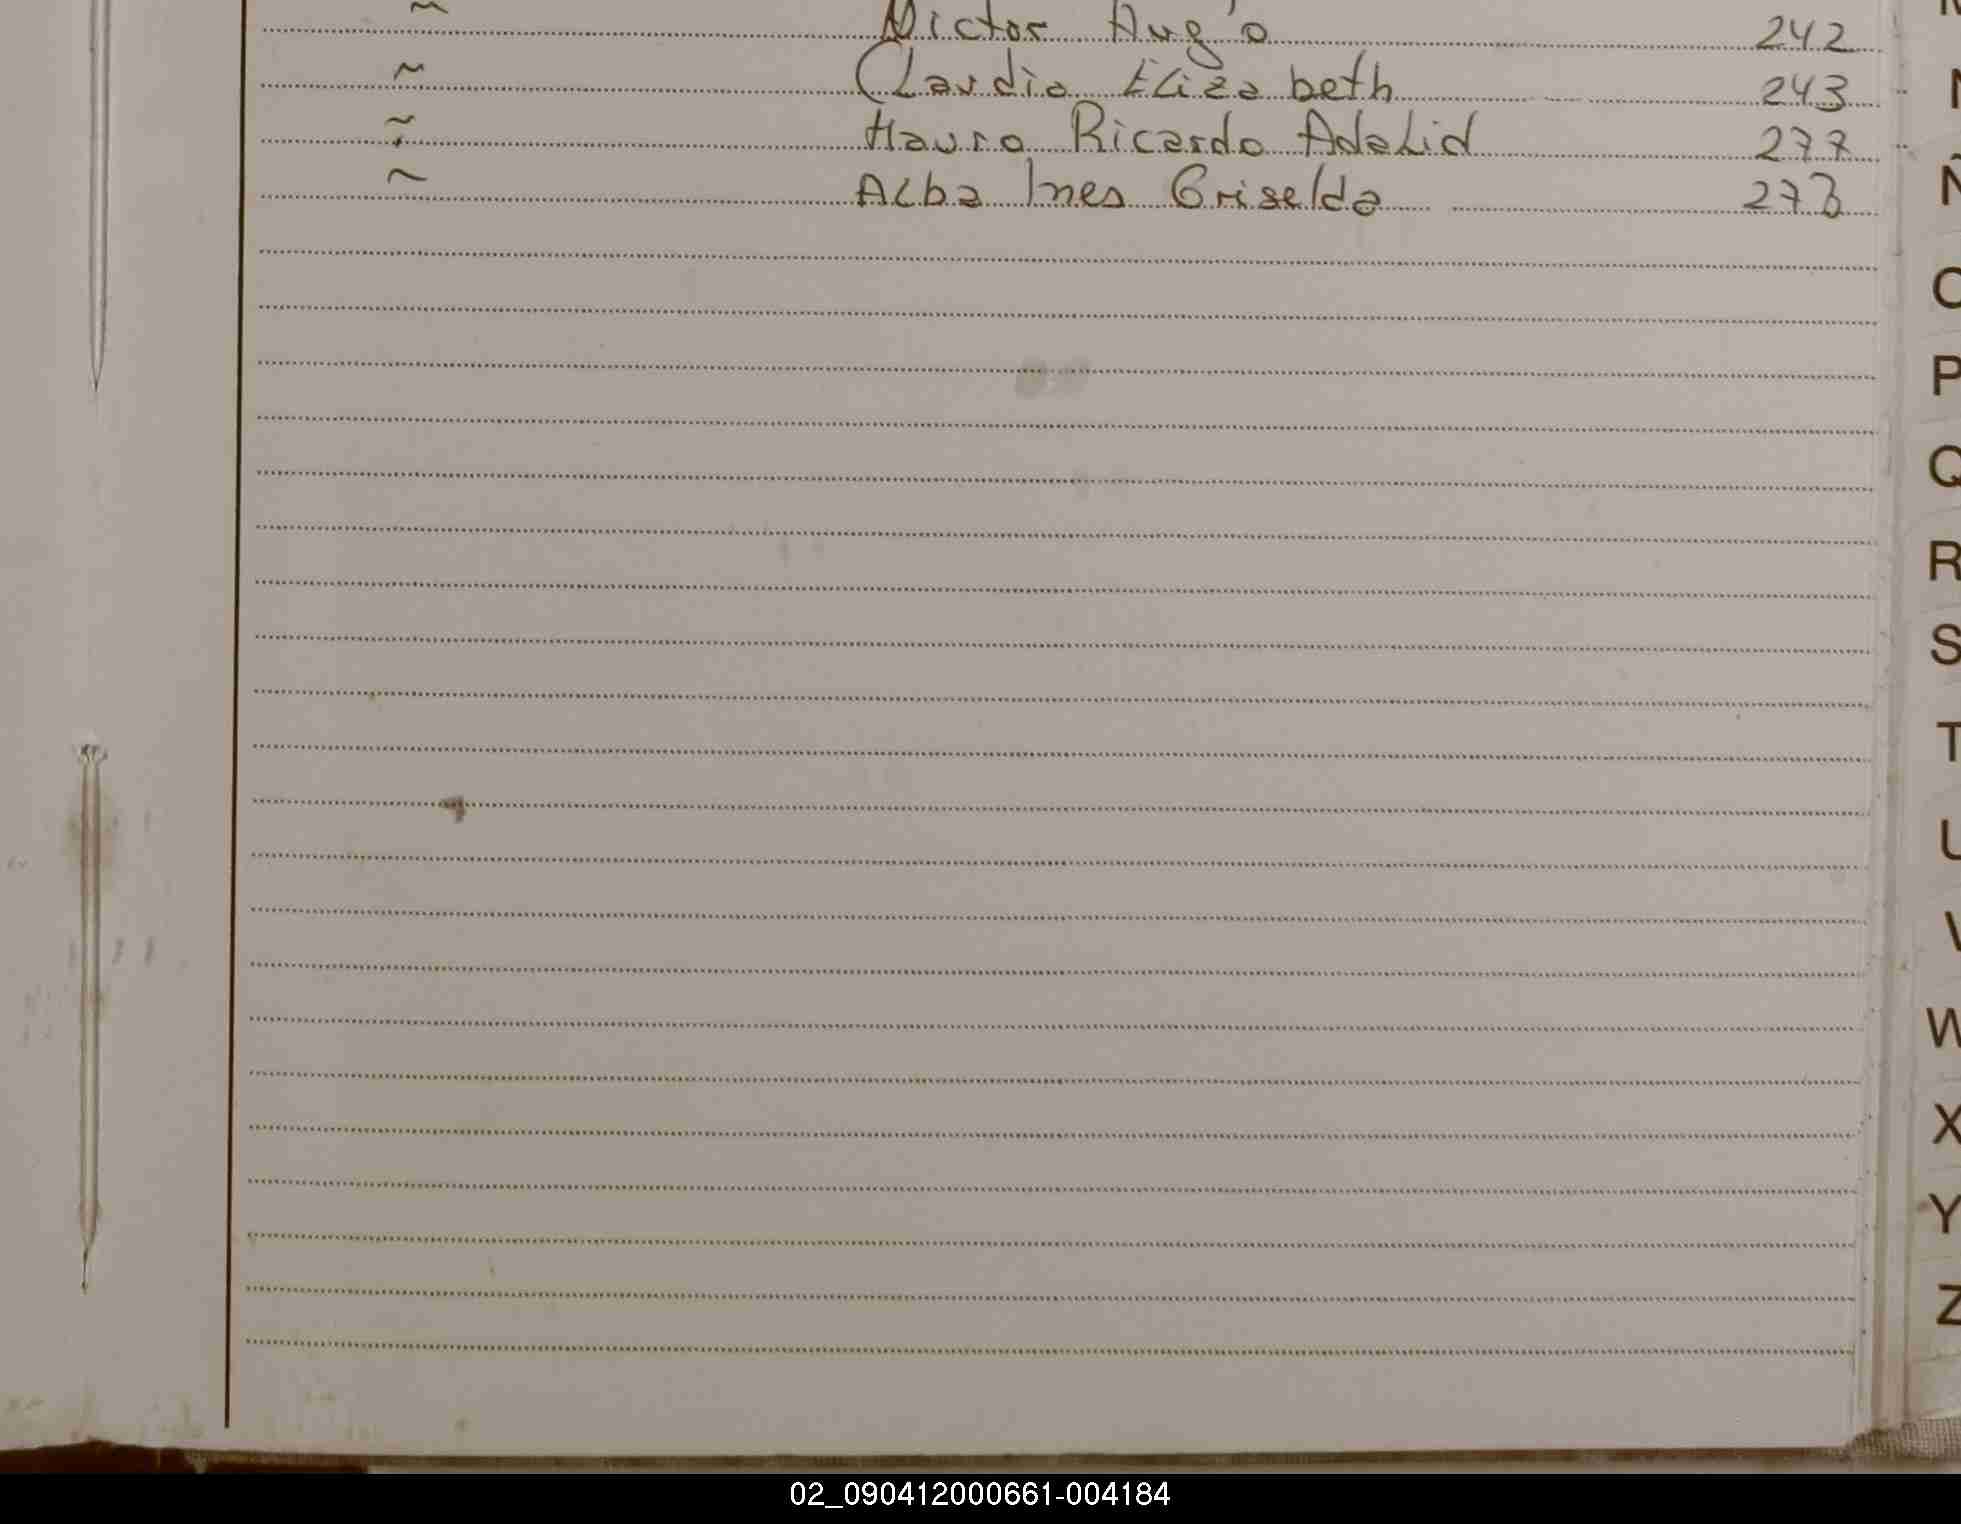 ~ Victor Aug'o 242
~ Claudia Elizabeth 243
~ Mauro Ricardo Adalid 277
~ Alba Ines Griselda 278
N
Ñ
O
P
Q
R
S
T
U
V
W
X
Y
Z
02_090412000661-004184